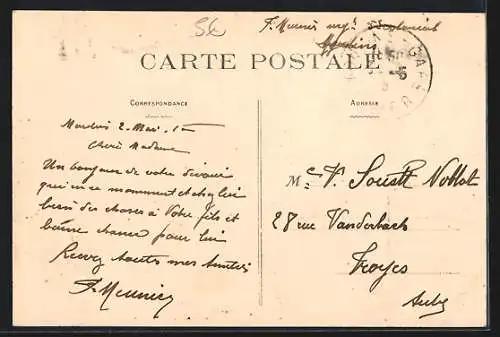 F. Meunier
CARTE POSTALE
CORRESPONDANCE
ADRESSE
Moulins 2 Mai 15
Chère Madame
Un bonjour de votre
qui en ce moment et chez lui
bien des choses à Votre fils et
bonne chance pour lui
Recevez toutes mes Amitiés
F. Meunier
V. Noblot
28 rue Vanderbach
Troyes
Aube